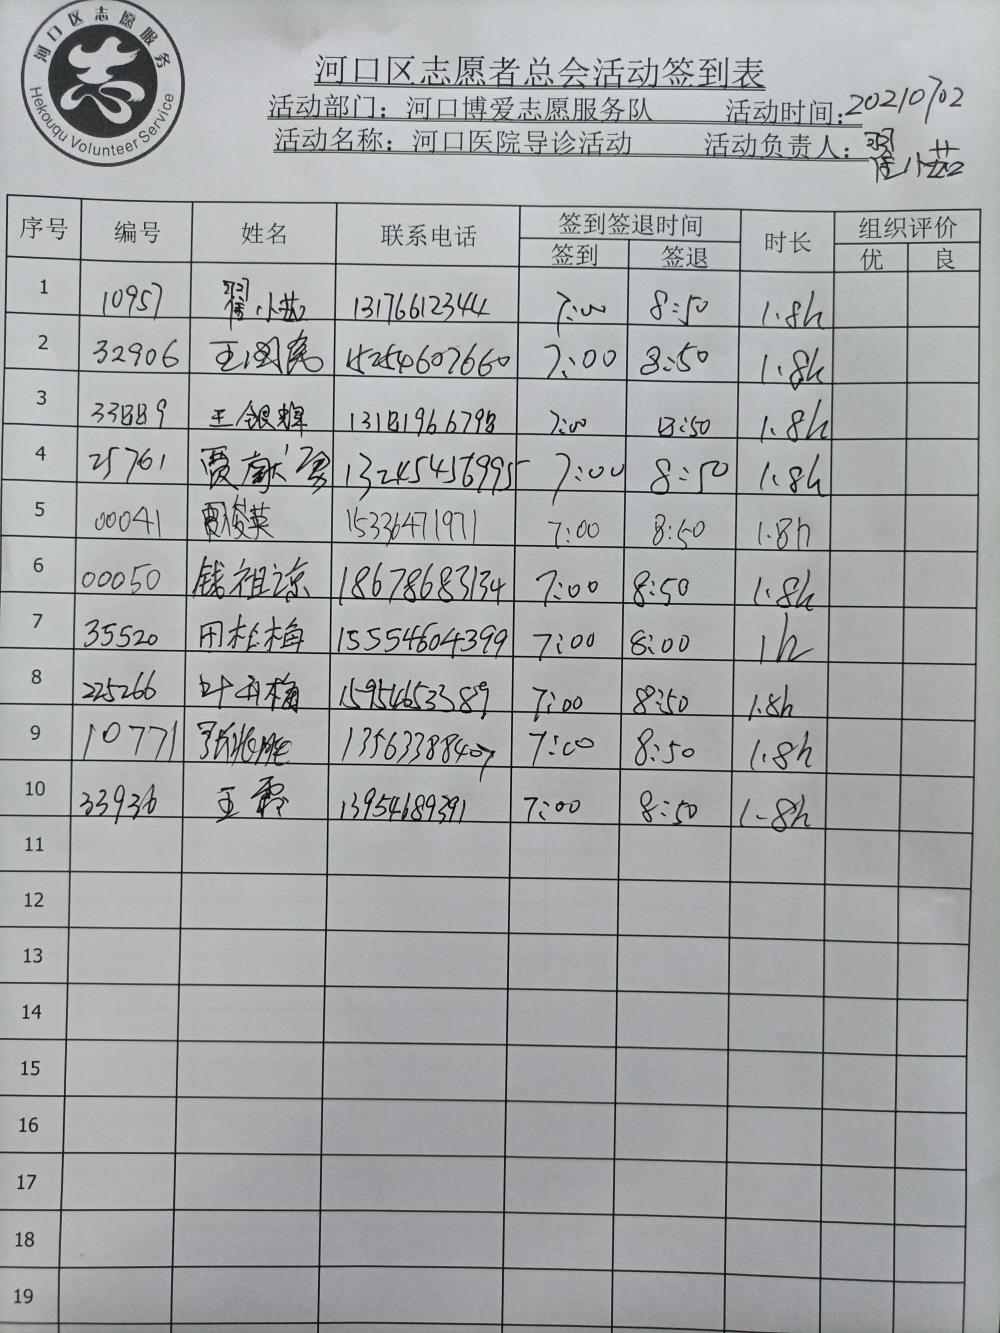 河口区志愿服务
志
Hekouqu Volunteer Service
河口区志愿者总会活动签到表
活动部门：河口博爱志愿服务队 活动时间：20210702
活动名称：河口医院导诊活动 活动负责人：翟小茹
序号 编号 姓名 联系电话 签到签退时间 时长 组织评价
签到 签退 优 良
1 10957 翟小茹 13176612344 7:00 8:50 1.8h
2 32906 15254607660 7:00 8:50 1.8h
3 33889 王银辉 13181966798 7:00 8:50 1.8h
4 25761 贾献 13245456995 7:00 8:50 1.8h
5 00041 贾俊英 15336471971 7:00 8:50 1.8h
6 00050 钱祖凉 18678683134 7:00 8:50 1.8h
7 35520 15554604399 7:00 8:00 1h
8 225266 叶 梅 15954653389 7:00 8:50 1.8h
9 10771 张 胜 13563388407 7:00 8:50 1.8h
10 33936 王霞 13954689391 7:00 8:50 1.8h
11
12
13
14
15
16
17
18
19